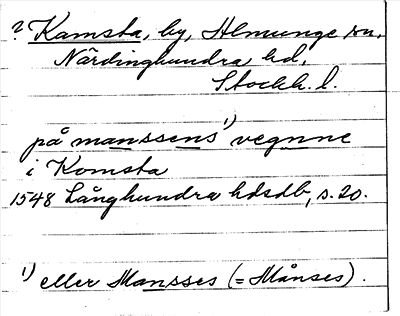 ? Kamsta, by, Almunge sn.
Närdinghundra hd,
Stockh. l.
på manssens¹⁾ vegnne
i Komsta
1548 Långhundra hdsdb, s. 20.
¹⁾ eller Mansses (= Månses).